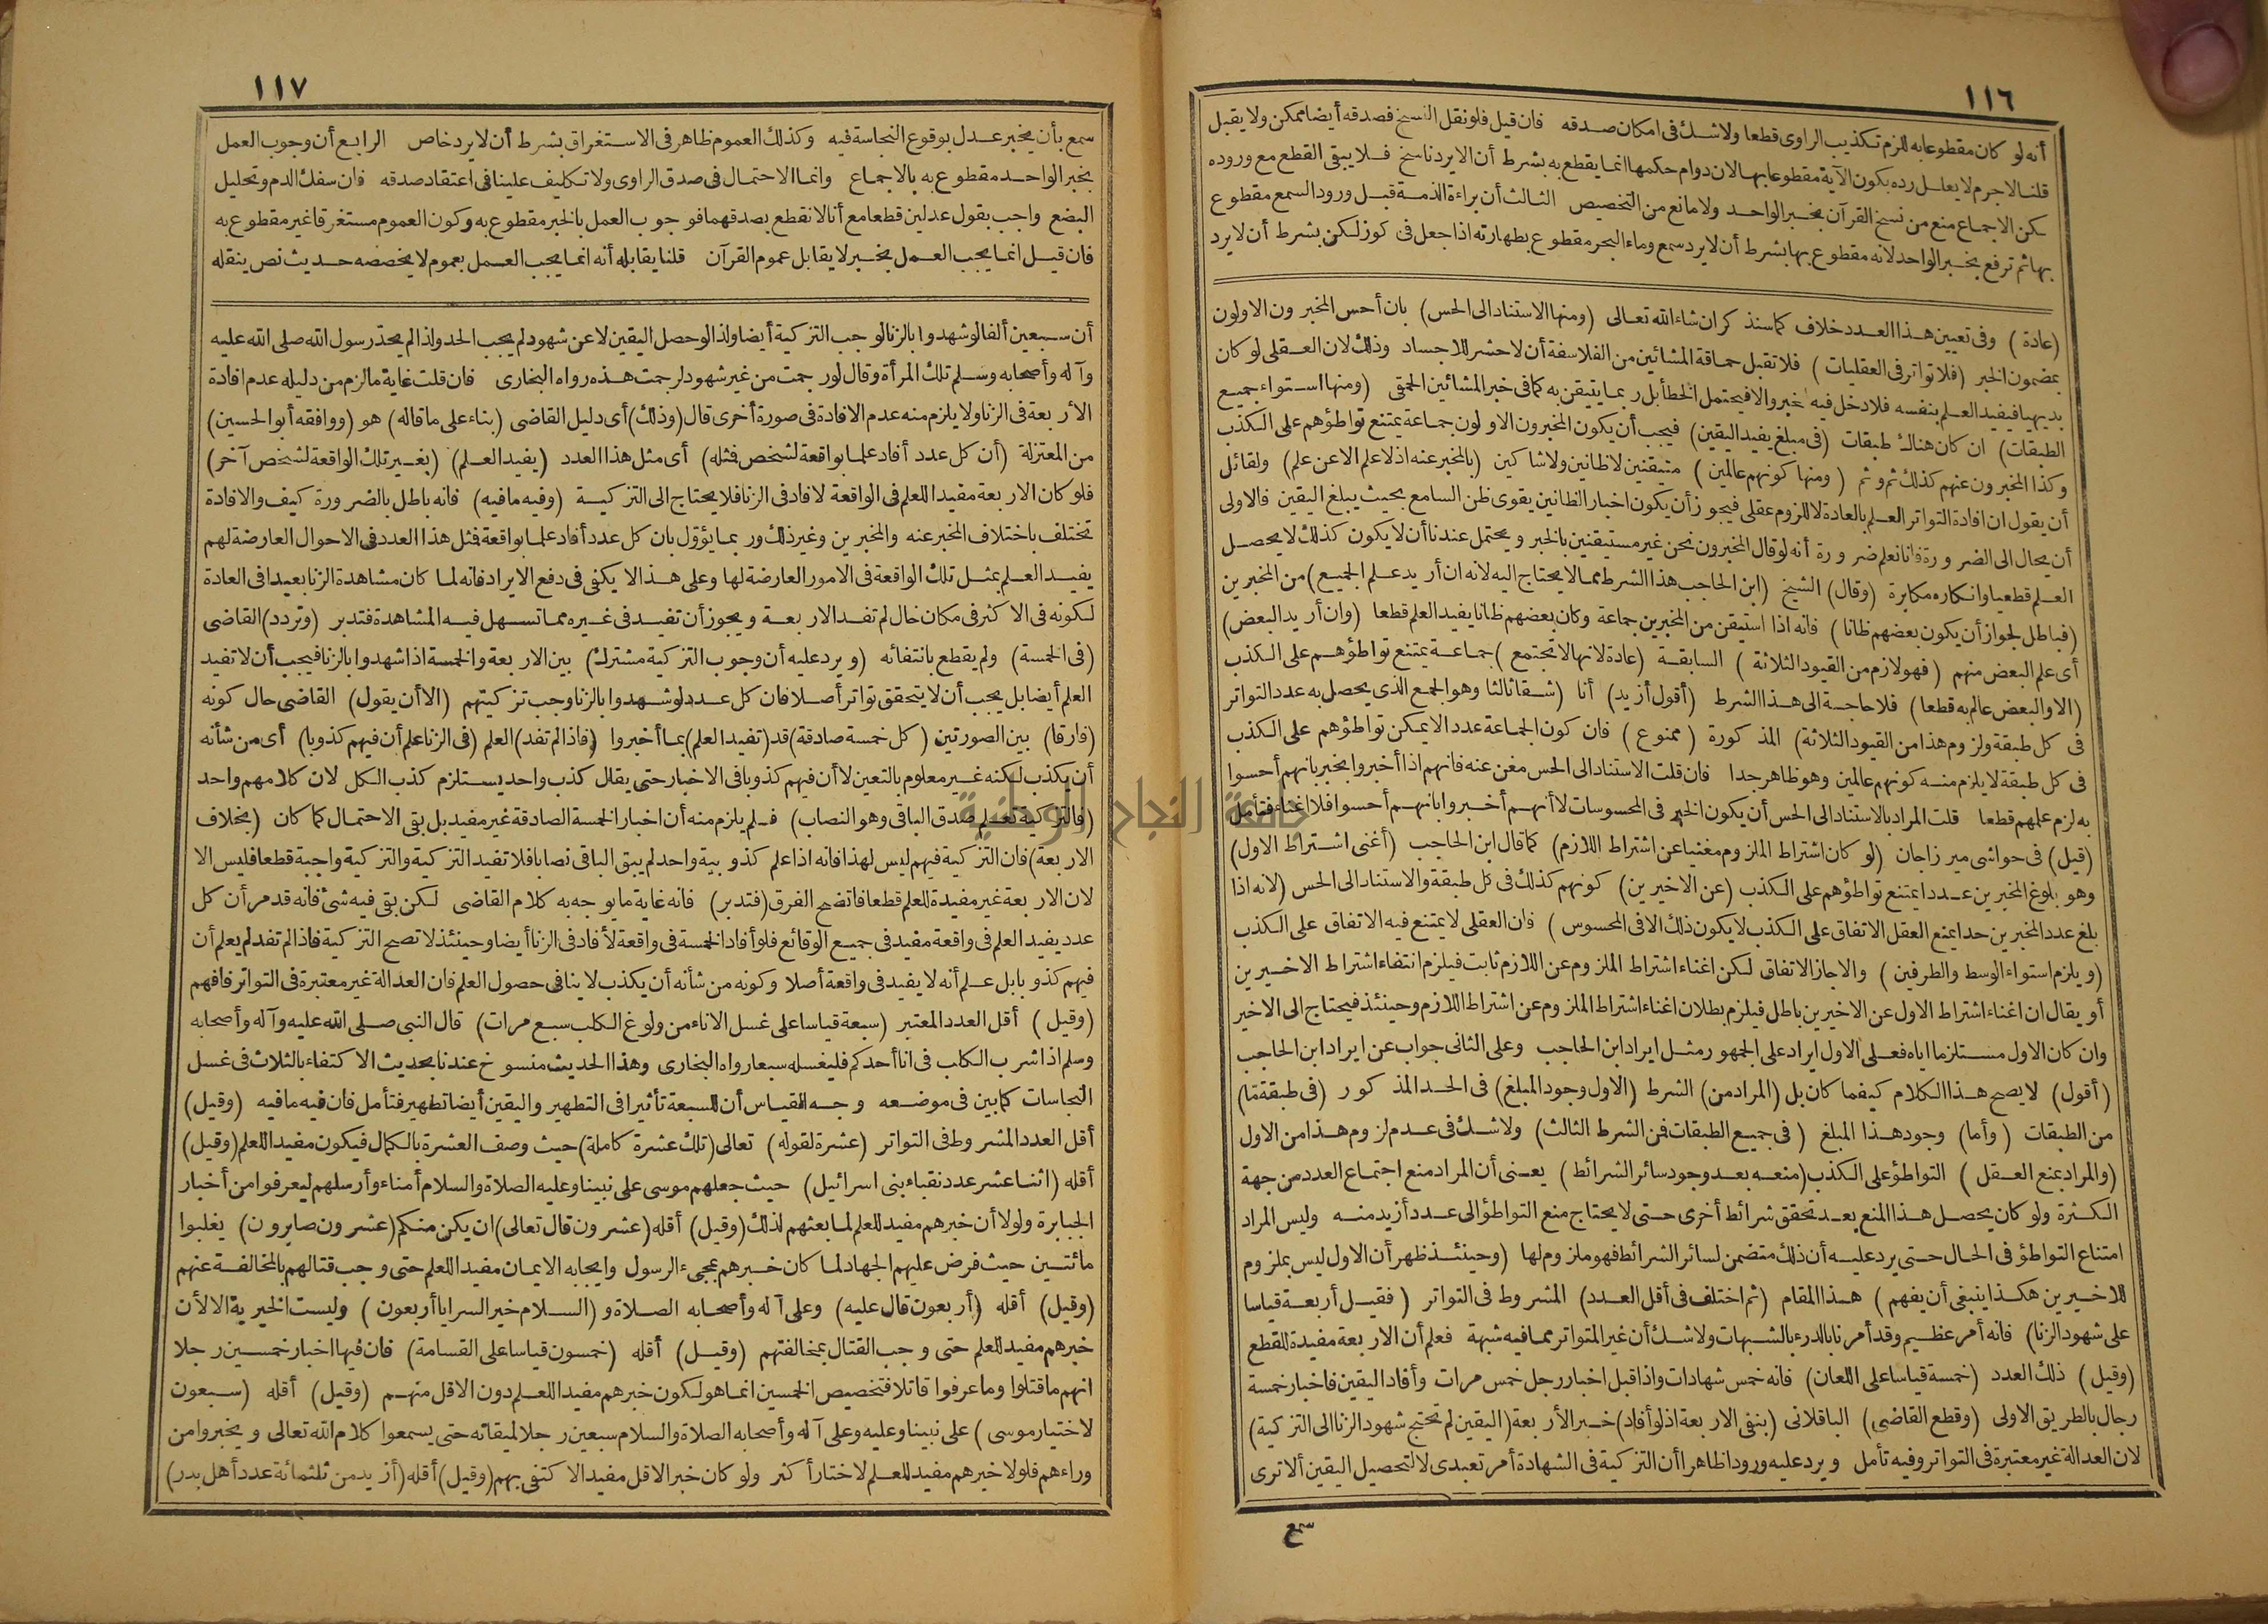 ١١٦
أنه لو كان مقطوعا به للزم تكذيب الراوى قطعا ولا شك فى امكان صدقه فان قيل فلو نقل النسخ فصدقه أيضا ممكن ولا يقبل
قلنا لا جرم لا يعلل رده بكون الآية مقطوعا بها لان دوام حكمها انما يقطع به بشرط أن لا يرد ناسخ فلا يبقى القطع مع وروده
لكن الاجماع منع من نسخ القرآن بخبر الواحد ولا مانع من التخصيص الثالث أن براءة الذمة قبل ورود السمع مقطوع
بها ثم ترفع بخبر الواحد لانه مقطوع بها بشرط أن لا يرد سمع وماء البحر مقطوع بطهارته اذا جعل فى كوز لكن بشرط أن لا يرد
(عادة) وفى تعيين هذا العدد خلاف كما سنذكر ان شاء الله تعالى (ومنها الاستناد الى الحس) بان أحس المخبرون الاولون
بمضمون الخبر (فلا تواتر فى العقليات) فلا تقبل حماقة المشائين من الفلاسفة أن لا حشر للاجساد وذلك لان العقلى لو كان
بديهيا فيفيد العلم بنفسه فلا دخل فيه لخبر والا فيحتمل الخطأ بل ربما يتيقن به كما فى خبر المشائين الحمقى (ومنها استواء جميع
الطبقات) ان كان هناك طبقات (فى مبلغ يفيد اليقين) فيجب أن يكون المخبرون الاولون جماعة يمتنع تواطؤهم على الكذب
وكذا المخبرون عنهم كذلك ثم وثم (ومنها كونهم عالمين) متيقنين لا ظانين ولا شاكين (بالمخبر عنه اذ لا علم الا عن علم) ولقائل
أن يقول ان افادة التواتر العلم بالعادة لا للزوم عقلى فيجوز أن يكون اخبار الظانين يقوى ظن السامع بحيث يبلغ اليقين فالاولى
أن يحال الى الضرورة فانا نعلم ضرورة أنه لو قال المخبرون نحن غير مستيقنين بالخبر ويحتمل عندنا أن لا يكون كذلك لا يحصل
العلم قطعيا وانكاره مكابرة (وقال) الشيخ (ابن الحاجب هذا الشرط مما لا يحتاج اليه لانه ان أريد علم الجميع) من المخبرين
(فباطل لجواز أن يكون بعضهم ظانا) فانه اذا استيقن من المخبرين جماعة وكان بعضهم ظانا يفيد العلم قطعا (وان أريد البعض)
أى علم البعض منهم (فهو لازم من القيود الثلاثة) السابقة (عادة لانها لا تجتمع) جماعة يمتنع تواطؤهم على الكذب
(الا والبعض عالم به قطعا) فلا حاجة الى هذا الشرط (أقول أزيد) أنا (شقا ثالثا وهو الجمع الذى يحصل به عدد التواتر
فى كل طبقة ولزوم هذا من القيود الثلاثة) المذكورة (ممنوع) فان كون الجماعة عددا لا يمكن تواطؤهم على الكذب
فى كل طبقة لا يلزم منه كونهم عالمين وهو ظاهر جدا فان قلت الاستناد الى الحس مغن عنه فانهم اذا أخبروا بخبر بانهم أحسوا
به لزم علمهم قطعا قلت المراد بالاستناد الى الحس أن يكون الخبر فى المحسوسات لا أنهم أخبروا بانهم أحسوا فلا اغناء فتأمل
(قيل) فى حواشى ميرزاجان (لو كان اشتراط الملزوم مغنيا عن اشتراط اللازم) كما قال ابن الحاجب (أغنى اشتراط الاول)
وهو بلوغ المخبرين عددا يمتنع تواطؤهم على الكذب (عن الاخيرين) كونهم كذلك فى كل طبقة والاستناد الى الحس (لانه اذا
بلغ عدد المخبرين حدا يمنع العقل الاتفاق على الكذب لا يكون ذلك الا فى المحسوس) فان العقلى لا يمتنع فيه الاتفاق على الكذب
(ويلزم استواء الوسط والطرفين) والا جاز الاتفاق لكن اغناء اشتراط الملزوم عن اللازم ثابت فيلزم انتفاء اشتراط الاخيرين
أو يقال ان اغناء اشتراط الاول عن الاخيرين باطل فيلزم بطلان اغناء اشتراط الملزوم عن اشتراط اللازم وحينئذ فيحتاج الى الاخير
وان كان الاول مستلزما اياه فعلى الاول ايراد على الجمهور مثل ايراد ابن الحاجب وعلى الثانى جواب عن ايراد ابن الحاجب
(أقول) لا يصح هذا الكلام كيفما كان بل (المراد من) الشرط (الاول وجود المبلغ) فى الحد المذكور (فى طبقة ما)
من الطبقات (وأما) وجود هذا المبلغ (فى جميع الطبقات فمن الشرط الثالث) ولا شك فى عدم لزوم هذا من الاول
(والمراد بمنع العقل) التواطؤ على الكذب (منعه بعد وجود سائر الشرائط) يعنى أن المراد منع اجتماع العدد من جهة
الكثرة ولو كان يحصل هذا المنع بعد تحقق شرائط أخرى حتى لا يحتاج منع التواطؤ الى عدد أزيد منه وليس المراد
امتناع التواطؤ فى الحال حتى يرد عليه أن ذلك متضمن لسائر الشرائط فهو ملزوم لها (وحينئذ ظهر أن الاول ليس بملزوم
للاخيرين هكذا ينبغى أن يفهم) هذا المقام (ثم اختلف فى أقل العدد) المشروط فى التواتر (فقيل أربعة قياسا
على شهود الزنا) فانه أمر عظيم وقد أمرنا بالدرء بالشبهات ولا شك أن غير المتواتر مما فيه شبهة فعلم أن الاربعة مفيدة للقطع
(وقيل) ذلك العدد (خمسة قياسا على اللعان) فانه خمس شهادات واذا قبل اخبار رجل خمس مرات وأفاد اليقين فاخبار خمسة
رجال بالطريق الاولى (وقطع القاضى) الباقلانى (بنفى الاربعة اذ لو أفاد) خبر الأربعة (اليقين لم تحتج شهود الزنا الى التزكية)
لان العدالة غير معتبرة فى التواتر وفيه تأمل ويرد عليه ورودا ظاهرا أن التزكية فى الشهادة أمر تعبدى لا لتحصيل اليقين ألا ترى
سمع
١١٧
سمع بأن يخبر عدل بوقوع النجاسة فيه وكذلك العموم ظاهر فى الاستغراق بشرط أن لا يرد خاص الرابع أن وجوب العمل
بخبر الواحد مقطوع به بالاجماع وانما الاحتمال فى صدق الراوى ولا تكليف علينا فى اعتقاد صدقه فان سفك الدم وتحليل
البضع واجب بقول عدلين قطعا مع أنا لا نقطع بصدقهما فوجوب العمل بالخبر مقطوع به وكون العموم مستغرقا غير مقطوع به
فان قيل انما يجب العمل بخبر لا يقابل عموم القرآن قلنا يقابله أنه انما يجب العمل بعموم لا يخصصه حديث نص ينقله
أن سبعين ألفا لو شهدوا بالزنا لوجب التزكية أيضا ولذا لو حصل اليقين لا عن شهود لم يجب الحد ولذا لم يحد رسول الله صلى الله عليه
وآله وأصحابه وسلم تلك المرأة وقال لو رجمت من غير شهود لرجمت هذه رواه البخارى فان قلت غاية ما لزم من دليله عدم افادة
الأربعة فى الزنا ولا يلزم منه عدم الافادة فى صورة أخرى قال (وذلك) أى دليل القاضى (بناء على ما قاله) هو (ووافقه أبو الحسين)
من المعتزلة (أن كل عدد أفاد علما بواقعة لشخص فمثله) أى مثل هذا العدد (يفيد العلم) (بغير تلك الواقعة لشخص آخر)
فلو كان الاربعة مفيدا للعلم فى الواقعة لافاد فى الزنا فلا يحتاج الى التزكية (وفيه ما فيه) فانه باطل بالضرورة كيف والافادة
تختلف باختلاف المخبر عنه والمخبرين وغير ذلك وربما يؤول بان كل عدد أفاد علما بواقعة فمثل هذا العدد فى الاحوال العارضة لهم
يفيد العلم بمثل تلك الواقعة فى الامور العارضة لها وعلى هذا لا يكفى فى دفع الايراد فانه لما كان مشاهدة الزنا بعيدا فى العادة
لكونه فى الاكثر فى مكان خال لم تفد الاربعة ويجوز أن تفيد فى غيره مما تسهل فيه المشاهدة فتدبر (وتردد) القاضى
(فى الخمسة) ولم يقطع بانتفائه (ويرد عليه أن وجوب التزكية مشترك) بين الاربعة والخمسة اذا شهدوا بالزنا فيجب أن لا تفيد
العلم أيضا بل يجب أن لا يتحقق تواتر أصلا فان كل عدد لو شهدوا بالزنا وجب تزكيتهم (الا أن يقول) القاضى حال كونه
(فارقا) بين الصورتين (كل خمسة صادقة) قد (تفيد العلم) بما أخبروا (فاذا لم تفد) العلم (فى الزنا علم أن فيهم كذوبا) أى من شأنه
أن يكذب لكنه غير معلوم بالتعين لا أن فيهم كذوبا فى الاخبار حتى يقال كذب واحد يستلزم كذب الكل لان كلامهم واحد
(فالتزكية تعلم صدق الباقى وهو النصاب) فلم يلزم منه أن اخبار الخمسة الصادقة غير مفيد بل بقى الاحتمال كما كان (بخلاف
الاربعة) فان التزكية فيهم ليس لهذا فانه اذا علم كذوبية واحد لم يبق الباقى نصابا فلا تفيد التزكية والتزكية واجبة قطعا فليس الا
لان الاربعة غير مفيدة للعلم قطعا فاتضح الفرق (فتدبر) فانه غاية ما يوجه به كلام القاضى لكن بقى فيه شئ فانه قد مر أن كل
عدد يفيد العلم فى واقعة مفيد فى جميع الوقائع فلو أفاد الخمسة فى واقعة لأفاد فى الزنا أيضا وحينئذ لا تصح التزكية فاذا لم تفد لم يعلم أن
فيهم كذوبا بل علم أنه لا يفيد فى واقعة أصلا وكونه من شأنه أن يكذب لا ينافى حصول العلم فان العدالة غير معتبرة فى التواتر فافهم
(وقيل) أقل العدد المعتبر (سبعة قياسا على غسل الاناء من ولوغ الكلب سبع مرات) قال النبى صلى الله عليه وآله وأصحابه
وسلم اذا شرب الكلب فى اناء أحدكم فليغسله سبعا رواه البخارى وهذا الحديث منسوخ عندنا بحديث الاكتفاء بالثلاث فى غسل
النجاسات كما بين فى موضعه وجه القياس أن للسبعة تأثيرا فى التطهير واليقين أيضا تطهير فتأمل فان فيه ما فيه (وقيل)
أقل العدد المشروط فى التواتر (عشرة لقوله) تعالى (تلك عشرة كاملة) حيث وصف العشرة بالكمال فيكون مفيدا للعلم (وقيل)
أقله (اثنا عشر عدد نقباء بنى اسرائيل) حيث جعلهم موسى على نبينا وعليه الصلاة والسلام أمناء وأرسلهم ليعرفوا من أخبار
الجبابرة ولولا أن خبرهم مفيد للعلم لما بعثهم لذلك (وقيل) أقله (عشرون قال تعالى) ان يكن منكم (عشرون صابرون) يغلبوا
مائتين حيث فرض عليهم الجهاد لما كان خبرهم بمجىء الرسول وايجابه الايمان مفيدا للعلم حتى وجب قتالهم بالمخالفة عنهم
(وقيل) أقله (أربعون قال عليه) وعلى آله وأصحابه الصلاة و(السلام خير السرايا أربعون) وليست الخيرية الا لأن
خبرهم مفيد للعلم حتى وجب القتال بمخالفتهم (وقيل) أقله (خمسون قياسا على القسامة) فان فيها اخبار خمسين رجلا
انهم ما قتلوا وما عرفوا قاتلا فتخصيص الخمسين انما هو لكون خبرهم مفيد اللعلم دون الاقل منهم (وقيل) أقله (سبعون
لاختيار موسى) على نبينا وعليه وعلى آله وأصحابه الصلاة والسلام سبعين رجلا لميقاته حتى يسمعوا كلام الله تعالى ويخبروا من
وراءهم فلولا خبرهم مفيد للعلم لاختار أكثر ولو كان خبر الاقل مفيدا لاكتفى بهم (وقيل) أقله (أزيد من ثلثمائة عدد أهل بدر)
جامعة النجاح الوطنية